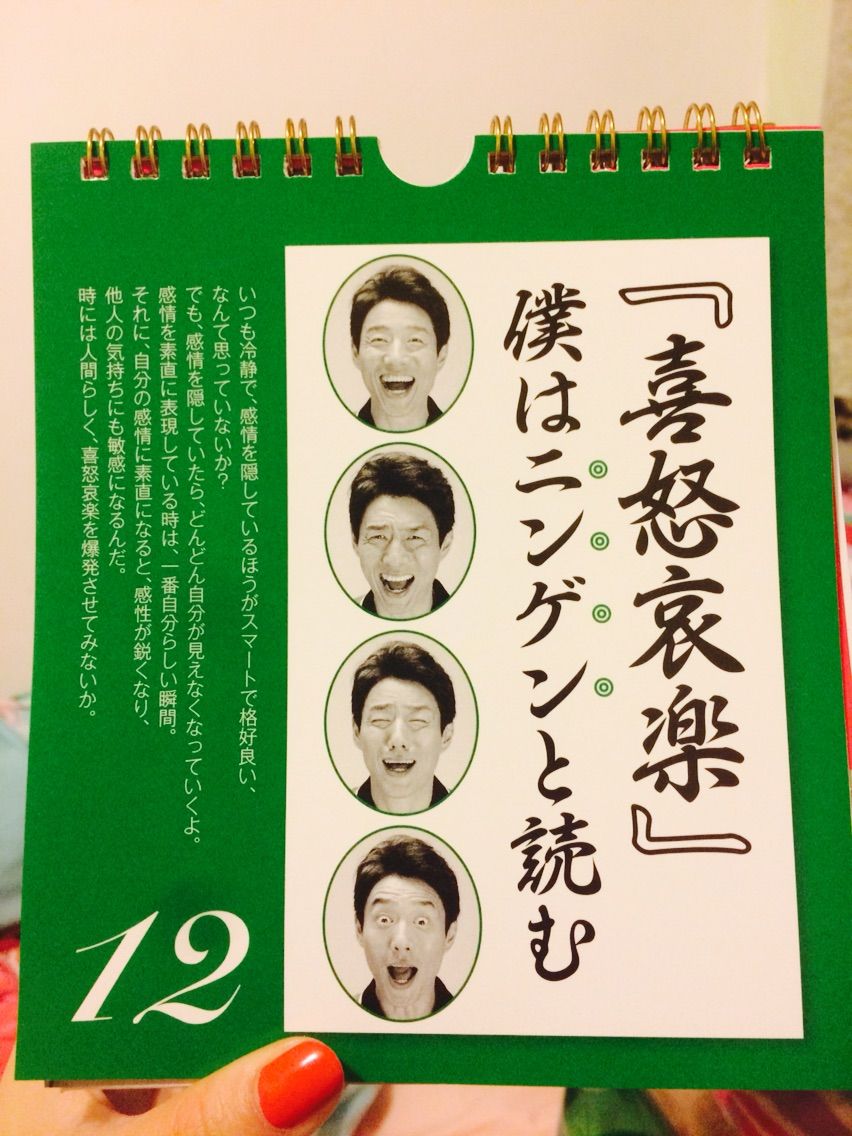 『喜怒哀楽』
僕はニンゲンと読む
いつも冷静で、感情を隠しているほうがスマートで格好良い、
なんて思っていないか?
でも、感情を隠していたら、どんどん自分が見えなくなっていくよ。
感情を素直に表現している時は、一番自分らしい瞬間。
それに、自分の感情に素直になると、感性が鋭くなり、
他人の気持ちにも敏感になるんだ。
時には人間らしく、喜怒哀楽を爆発させてみないか。
12